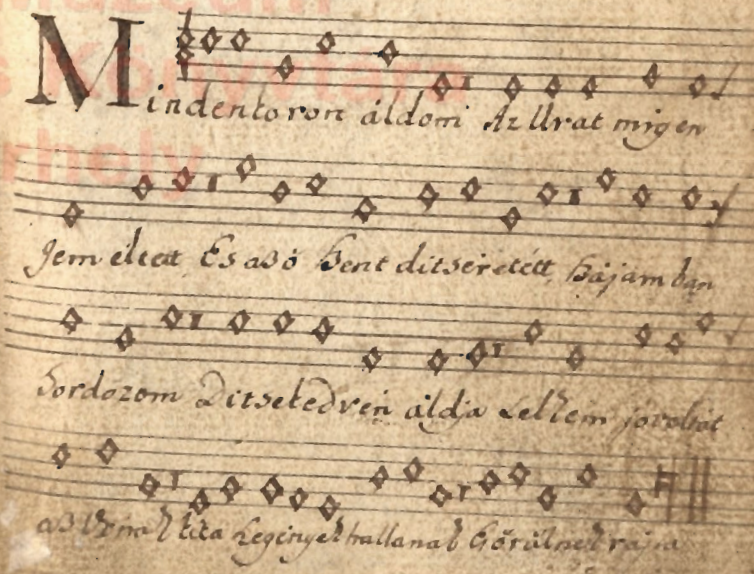 Mindenkoron áldom Az Urat mig en
Jem eltett És az ő Szent ditseretétt Szájamban
hordozom Ditsekedven áldja Lelkem jóvoltát
az Urnak kita Legények hallanak Görülnek rajta